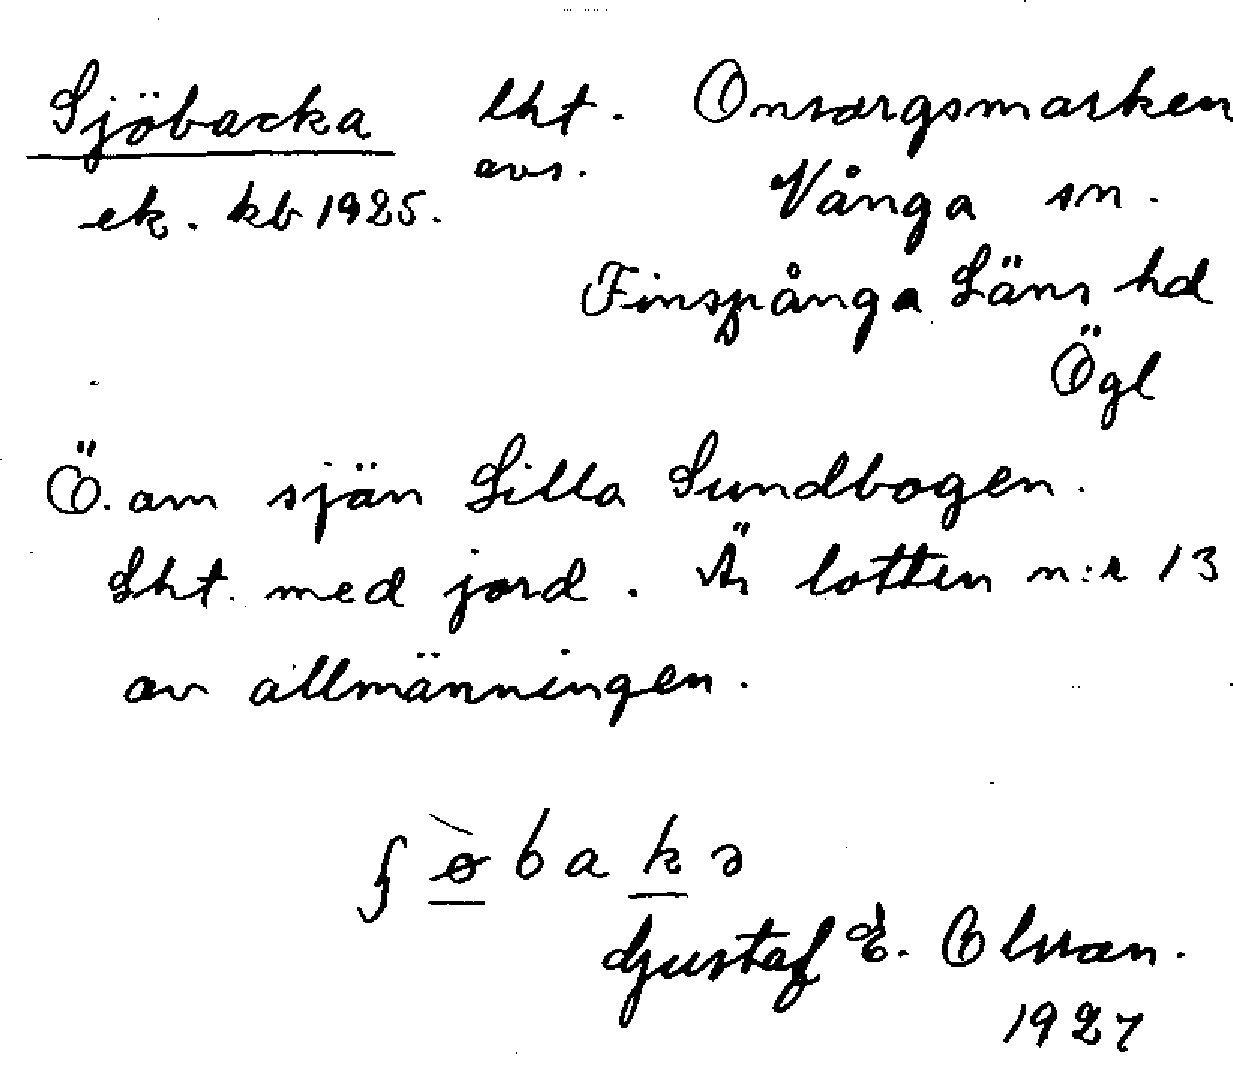 Sjöbacka lht. Omsorgsmarken
avs. Vånga sn.
ek. kb 1925.
Finspånga Läns hd
Ögl
Ö. om sjön Lilla Sundbogen.
Lht. med jord. Är lotten n:r 13
av allmänningen.
ʃøbakə
Gustaf E. Olsson.
1927